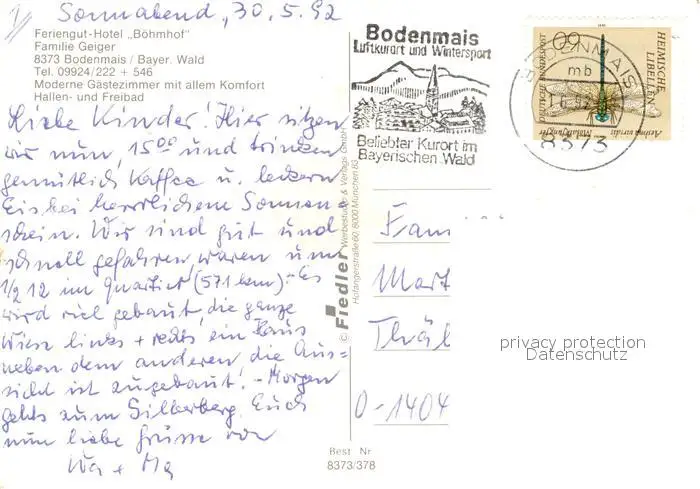 Sonnabend, 30.5.92
Feriengut-Hotel „Böhmhof"
Familie Geiger
8373 Bodenmais / Bayer. Wald
Tel. 09924/222 + 546
Moderne Gästezimmer mit allem Komfort
Hallen- und Freibad
Liebe Kinder! Hier sitzen
wir nun, 15⁰⁰ und trinken
gemütlich Kaffee u. leckern
Eis bei herrlichem Sonnen=
schein. Wir sind gut und
schnell gefahren, waren um
1/2 12 im Quartier (571 km).- Es
wird viel gebaut, die ganze
Wiese links + rechts ein Haus
neben dem anderen, die Aus=
sicht ist zugebaut! - Morgen
gehts zum Silberberg. Euch
nun liebe Grüsse von
Bodenmais
Luftkurort und Wintersport
Beliebter Kurort im
Bayerischen Wald
60
DEUTSCHE BUNDESPOST
HEIMISCHE
LIBELLEN
Aeshna viridis
Mosaikjungfer
BODENMAIS
mb
8373
© Fiedler Werbestudio & Verlags GmbH
Hofangerstraße 60, 8000 München 83
Fam
Mart
Thäl
O-1404
privacy protection
Datenschutz
Best Nr
8373/378